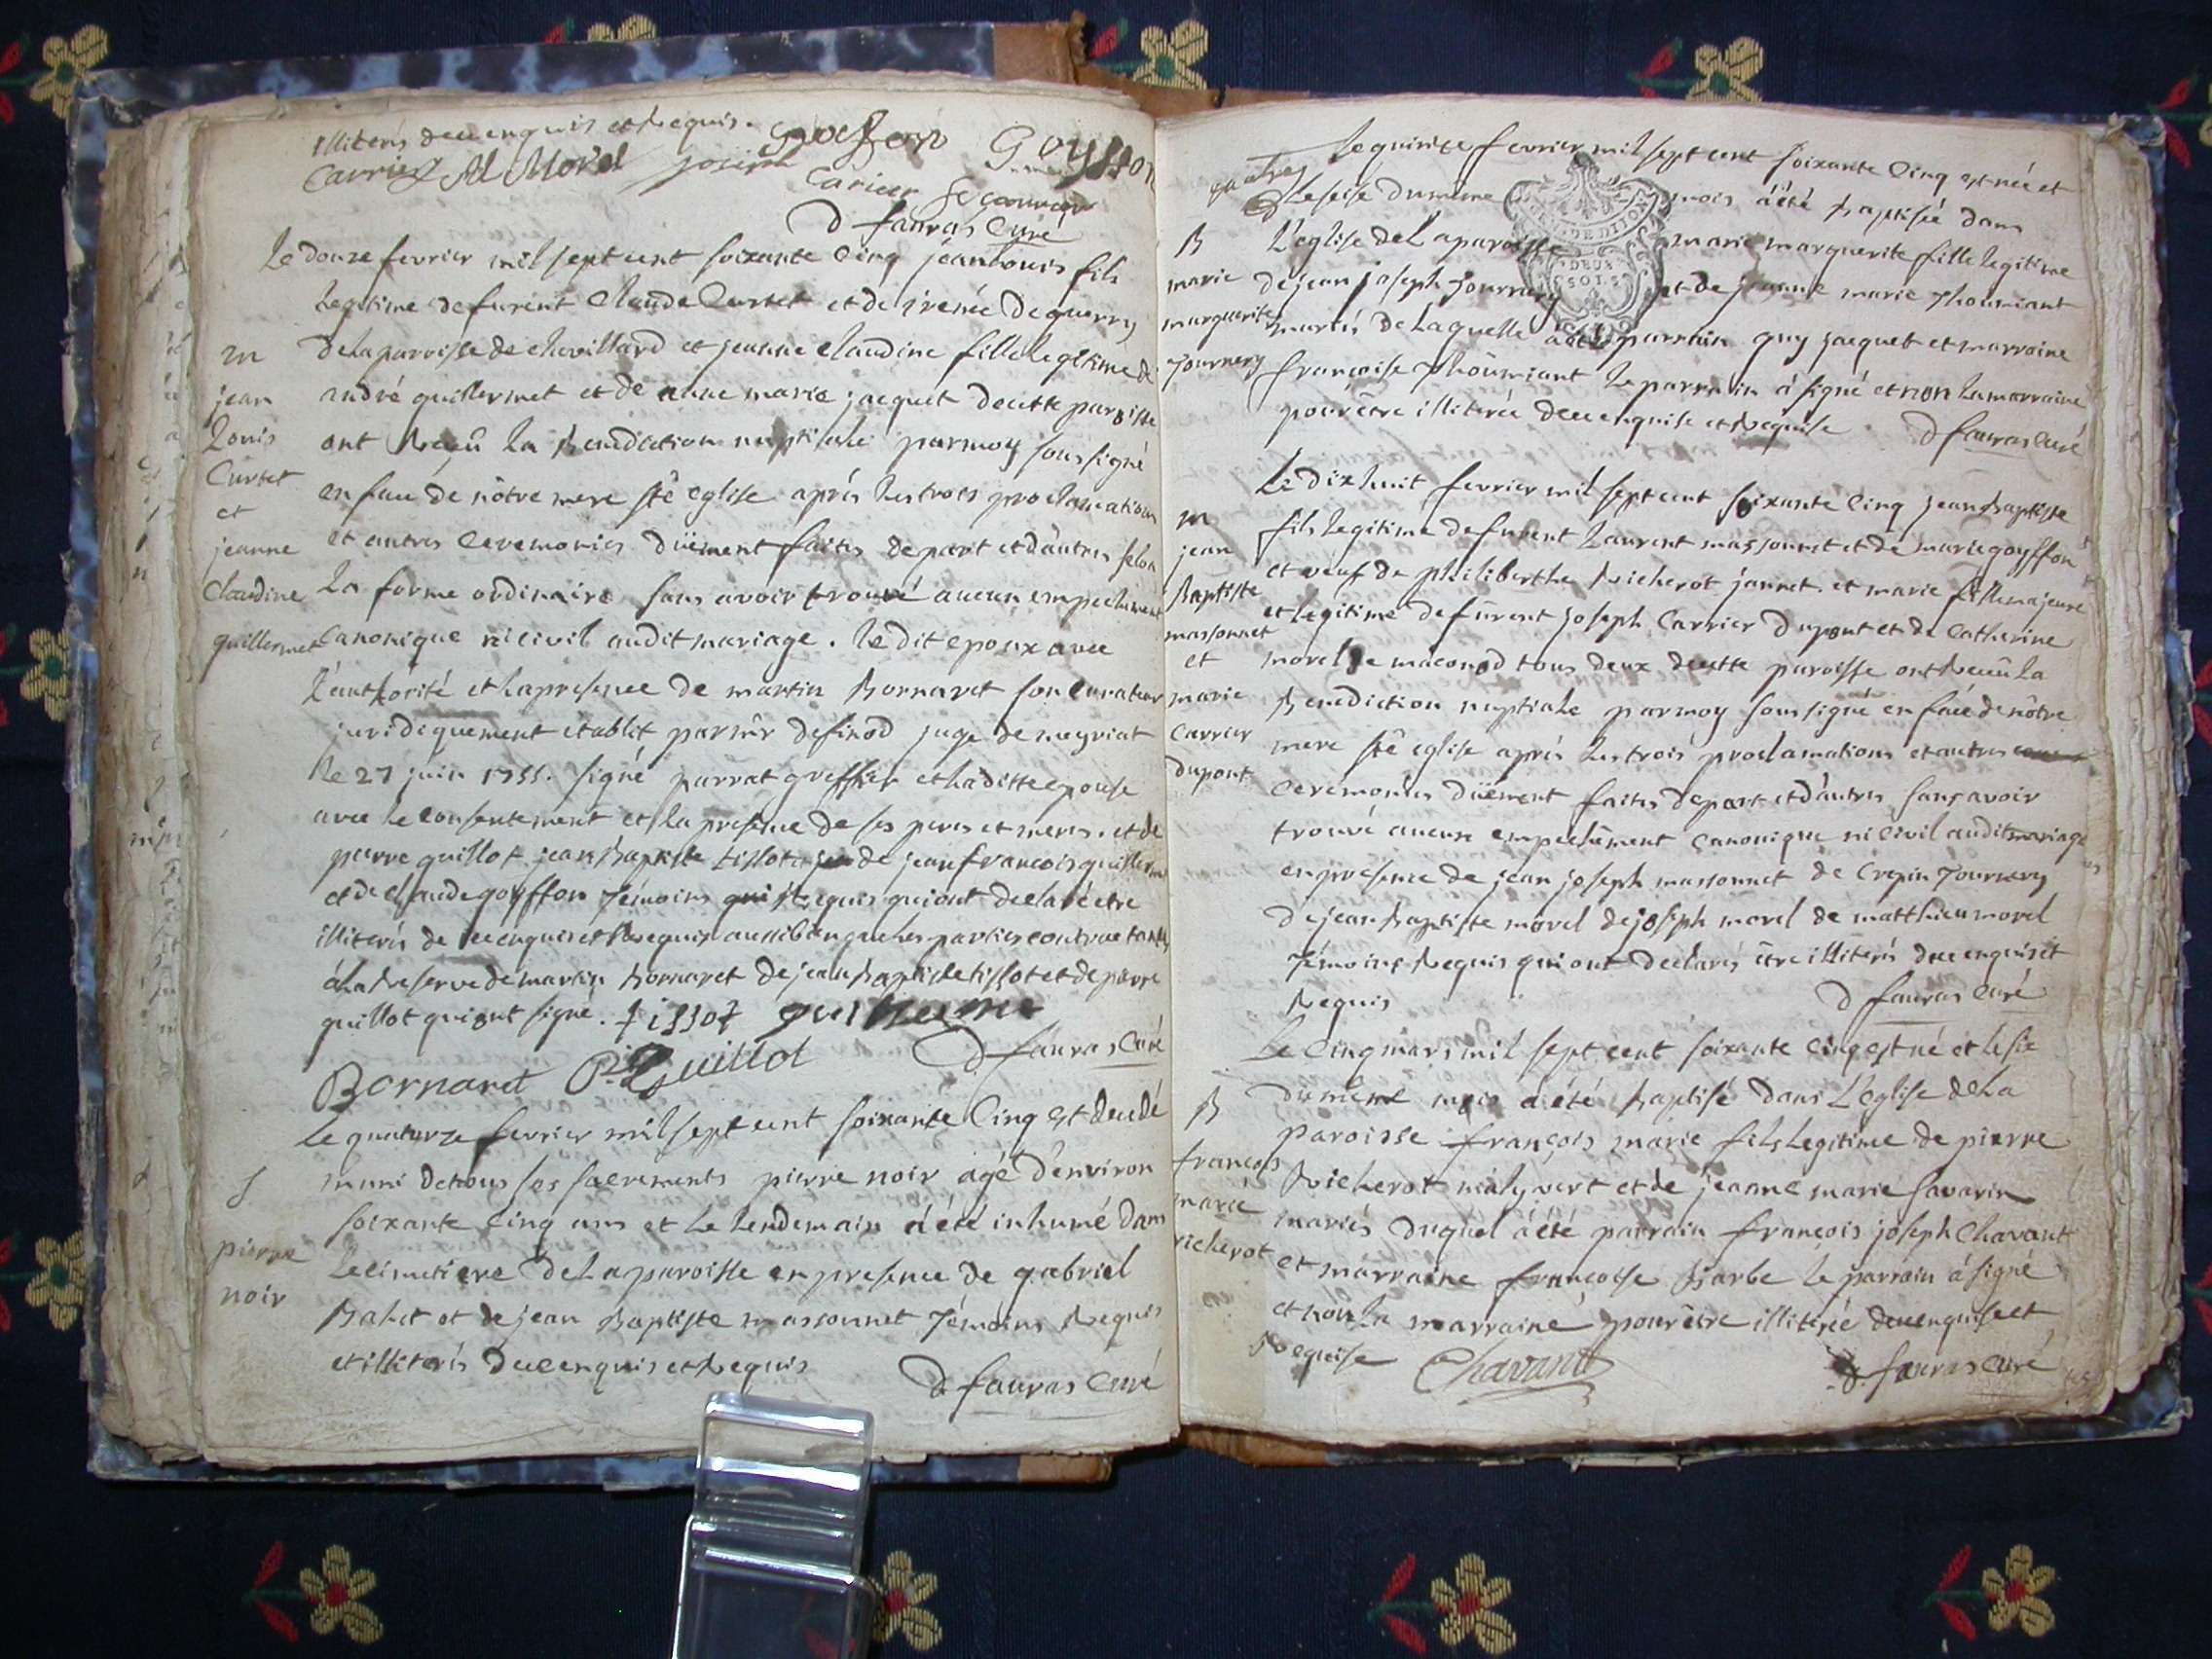 illiterés de ce enquis et Requis. goiffon Goyffon
Carrier M Morel joseph Carier
D fauras Curé
Le douze fevrier mil sept cent soixante Cinq jean Louis fils
legitime de furent Claude Curtet et de irenée Deguerry
m
De la parroisse de chevillard et jeanne claudine fille legitime de
jean
andré guillermet et de anne marie jacquet de cette paroisse
Louis
ont Reçû la Benediction nuptiale par moy soussigné
Curtet
en face de nôtre mere ste eglise aprés les trois proclamations
et
jeanne
et autres Ceremonies düement faites de part et d'autres selon
Claudine
La forme ordinaire sans avoir trouvé aucun empechement
guillermet
Canonique ni civil audit mariage. le dit epoux avec
L'authorité et la presence de martin Bornaret son curateur
juridiquement etablit par mr de finod juge de meyriat
le 27 juin 1755. signé parrat greffier et la ditte epouse
avec le consentement et la presence de ses peres et meres. et de
pierre guillot jean Baptiste tissot de jean francois guillermet
et de claude goyffon Témoins Requis qui ont declaré etre
illiterés de ce enquis et Requis aussi bien que les parties contractantes
á la Reserve de martin Bornaret de jean Baptiste tissot et de pierre
guillot qui ont signé. tissot
Bornaret P. Guillot D fauras Curé
Le quatorze fevrier mil sept cent soixante Cinq est decedé
S
muni de tous ses sacrements pierre noir agé d'environ
soixante Cinq ans et le lendemain á été inhumé dans
pierre
le cimetiere de la paroisse en presence de gabriel
noir
Balit et de jean Baptiste massonnet Témoins Requis
et illiterés de ce enquis et Requis D fauras Curé
Le quinze fevrier mil sept cent soixante Cinq est née et
quatres
Le seise du même mois á été Baptisée dans
B
L'eglise de La paroisse marie marguerite fille legitime
marie
de jean joseph Tournery et de jeanne marie Thoumiant
marguerite
mariés de laquelle á été parrain guy jacquet et marraine
Tournery
françoise Thoûmiant le parrain á signé et non la marraine
pour être illiterée de ce enquise et Requise D fauras Curé
Le dix huit fevrier mil sept cent soixante Cinq jean Baptiste
m
fils legitime de furent Laurent massonnet et de marie goyffon
jean
et veuf de philiberthe Richerot jannet. et marie fille majeure
Baptiste
et legitime de furent joseph Carrier dupont et de Catherine
massonnet
morel de maconod tous deux de cette paroisse ont Receu la
et
marie
Benediction nuptiale par moy soussigné en face de nôtre
Carrier
mere ste eglise aprés les trois proclamations et autres
dupont
Ceremonies düement faites de part et d'autres sans avoir
trouvé aucun empechement canonique ni civil audit mariage
en presence de jean joseph massonnet de Crepin Tournery
de jean Baptiste morel de joseph morel de matthieu morel
Témoins Requis qui ont declarés être illiterés de ce enquis et
Requis D fauras Curé
Le Cinq mars mil sept cent soixante Cinq est né et le six
du même mois á été Baptisé dans L'eglise de La
B
paroisse françois marie fils legitime de pierre
francois
Richerot maly vert et de jeanne marie savarin
marie
mariés duquel á été parrain françois joseph Chavant
richerot
et marraine françoise Barbe le parrain á signé
et non la marraine pour être illiterée de ce enquise et
Requise Chavant D. fauras Curé